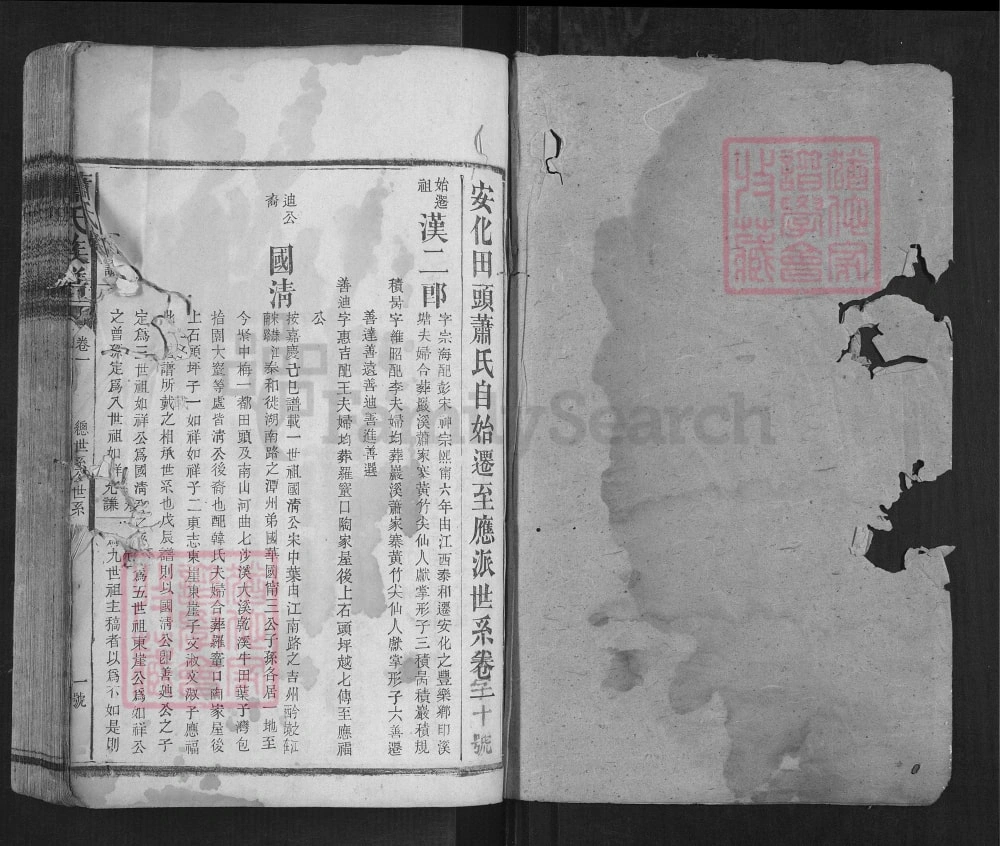 安化田頭蕭氏自始遷至應派世系卷三十號
始遷祖
漢二郎
字宗海配彭宋神宗熙甯六年由江西泰和遷安化之豐樂鄉印溪
塘夫婦合葬巖溪蕭家寨黃竹尖仙人獻掌形子三積昺積巖積規
積昺字維昭配李夫婦均葬巖溪蕭家寨黃竹尖仙人獻掌形子六善遷
善達善遠善迪善進善選
善迪字惠吉配王夫婦均葬羅甕口陶家屋後上石頭坪越七傳至應福
公
迪公裔
國淸
按嘉慶己巳譜載一世祖國淸公宋中葉由江南路之吉州
泰和徙湖南路之潭州弟國華國甯三公子孫各居一地至
今常中梅一都田頭及南山河曲七沙溪大溪乾溪牛田葉子灣包
抬園大窽等處皆淸公後裔也配韓氏夫婦合葬羅甕口陶家屋後
上石頭坪子一如祥如祥子二東志東崖東崖子文淑文淑子應福
此 譜所載之相承世系也戊辰譜則以國淸公卽善迪公之子
定爲三世祖如祥公爲國淸公之 爲五世祖東崖公爲如祥公
之曾孫定爲八世祖如祥 九世祖主稿者以爲不如是則
蕭氏族譜
卷一
總世系世系
一號
FamilySearch